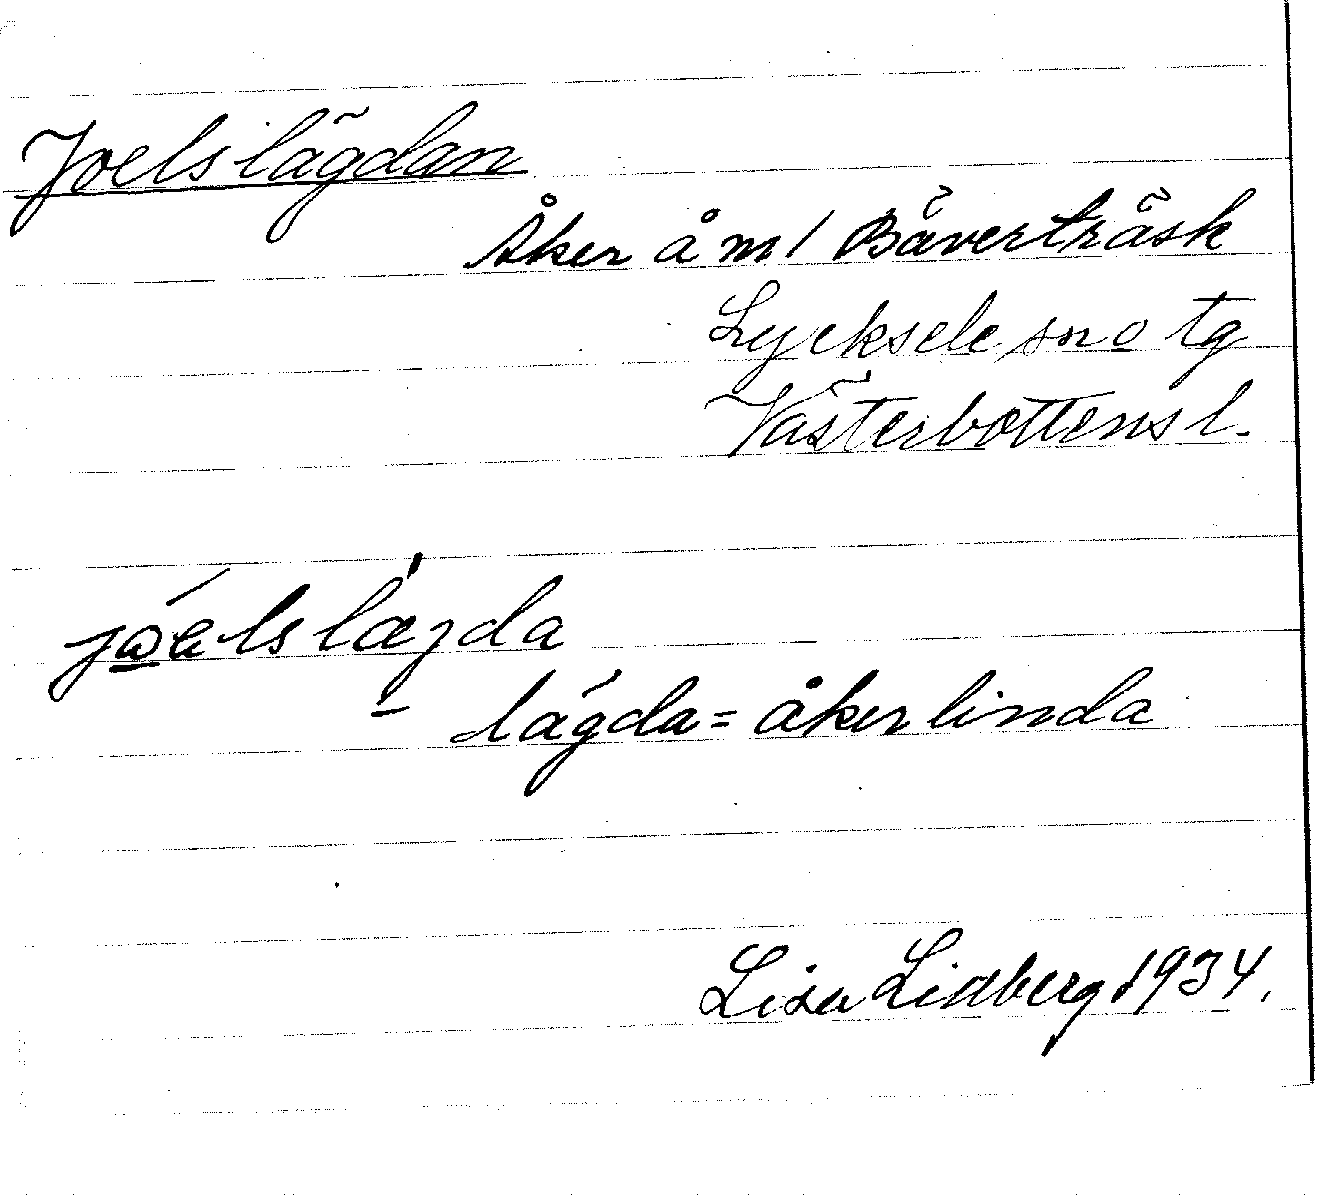 Joelslägdan
Åker å m/ Bäverträsk
Lycksele sn o tg
Västerbottens l.
jώ̲əlslæʒda
lägda = åkerlinda
Lisa Lidberg 1934.